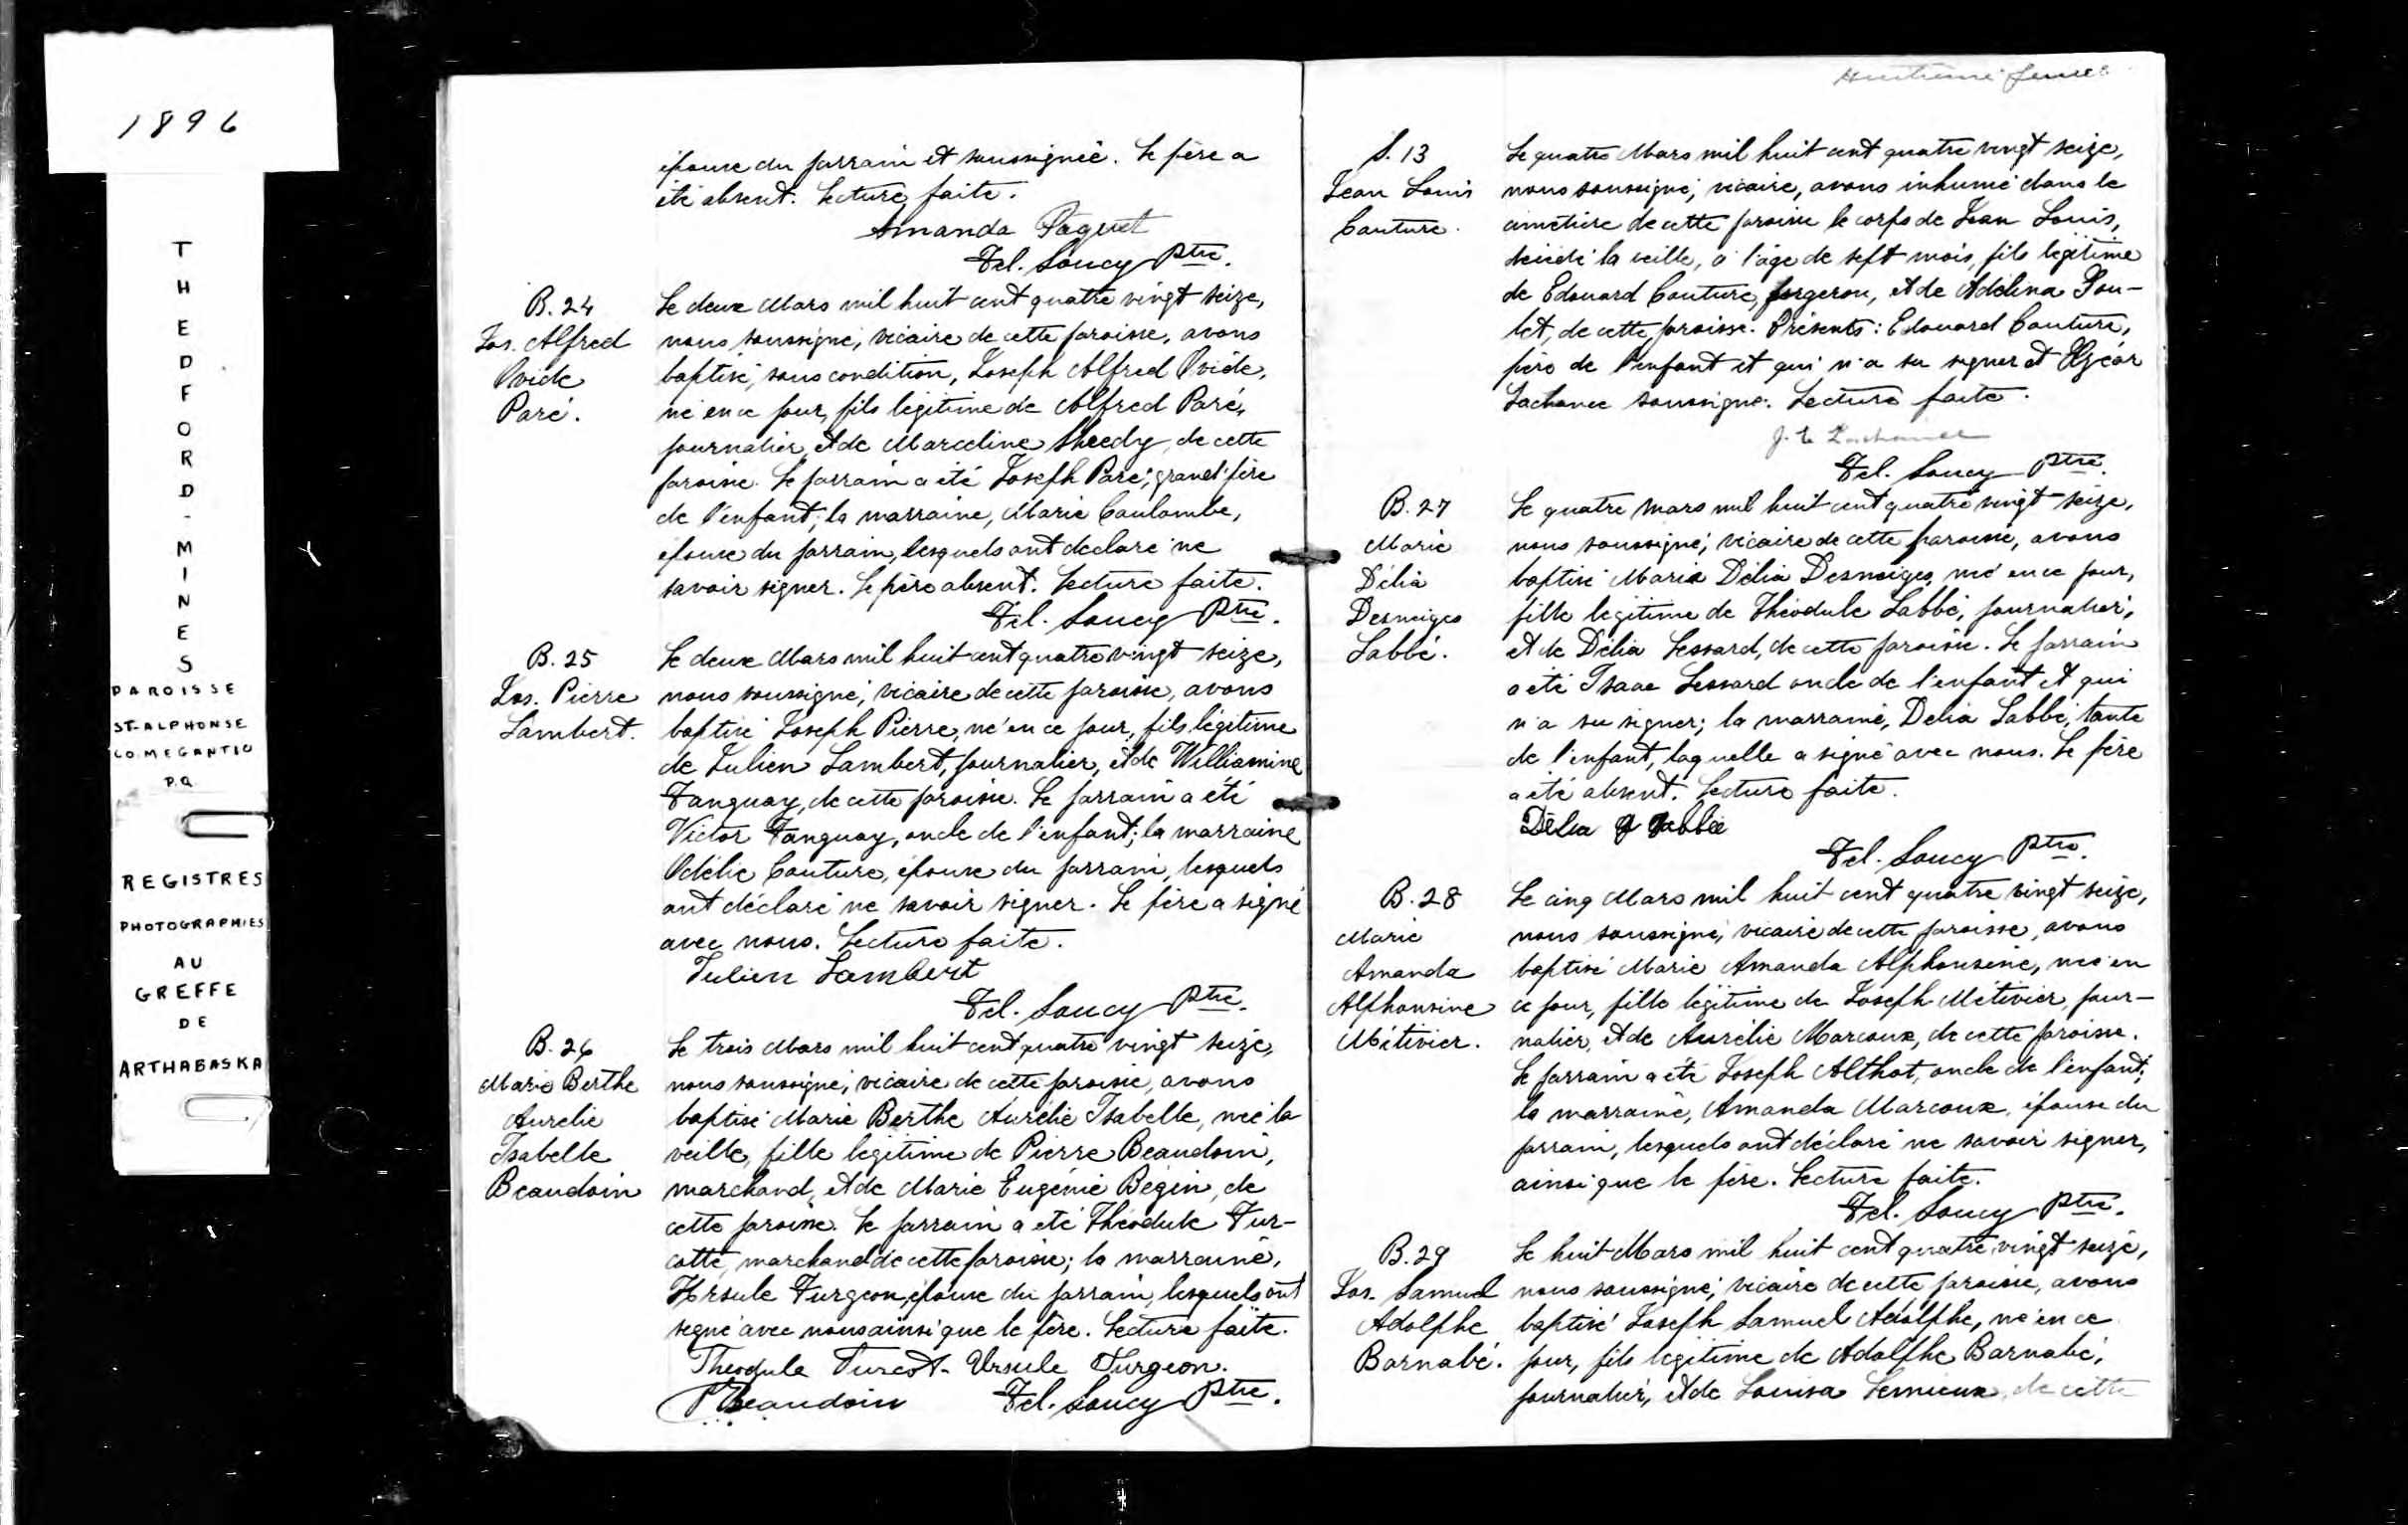 1896
THEDFORD-MINES
PAROISSE
ST-ALPHONSE
CO. MEGANTIC
P.Q.
REGISTRES
PHOTOGRAPHIES
AU
GREFFE
DE
ARTHABASKA
épouse du parrain et soussignée. Le père a
été absent. Lecture faite.
Amanda Paquet
Fel. Soucy Ptre.
B. 24
Jos. Alfred
Ovide
Paré.
Le deux Mars mil huit cent quatre vingt seize,
nous soussigné, vicaire de cette paroisse, avons
baptisé, sous condition, Joseph Alfred Ovide,
né en ce jour, fils légitime de Alfred Paré,
journalier, et de Marceline Sheedy, de cette
paroisse. Le parrain a été Joseph Paré, grand'père
de l'enfant; la marraine, Marie Coulombe,
épouse du parrain, lesquels ont déclaré ne
savoir signer. Le père absent. Lecture faite.
Fel. Soucy Ptre.
B. 25
Jos. Pierre
Lambert.
Le deux Mars mil huit cent quatre vingt seize,
nous soussigné, vicaire de cette paroisse, avons
baptisé Joseph Pierre, né en ce jour, fils légitime
de Julien Lambert, journalier, et de Williamine
Tanguay, de cette paroisse. Le parrain a été
Victor Tanguay, oncle de l'enfant; la marraine
Odélie Couture, épouse du parrain, lesquels
ont déclaré ne savoir signer. Le père a signé
avec nous. Lecture faite.
Julien Lambert
Fel. Soucy Ptre.
B. 26
Marie Berthe
Aurelie
Isabelle
Beaudoin
Le trois Mars mil huit cent quatre vingt seize,
nous soussigné, vicaire de cette paroisse, avons
baptisé Marie Berthe Aurélie Isabelle, née la
veille, fille légitime de Pierre Beaudoin,
marchand, et de Marie Eugénie Bégin, de
cette paroisse. Le parrain a été Théodule Tur-
cotte, marchand de cette paroisse; la marraine,
Ursule Turgeon, épouse du parrain, lesquels ont
signé avec nous ainsi que le père. Lecture faite.
Theodule Turcot - Ursule Turgeon.
P Beaudoin Fel. Soucy Ptre.
S. 13
Jean Louis
Couture.
Le quatre Mars mil huit cent quatre vingt seize,
nous soussigné, vicaire, avons inhumé dans le
cimetière de cette paroisse le corps de Jean Louis,
décédé la veille, à l'âge de sept mois, fils légitime
de Edouard Couture, forgeron, et de Adélina Pou-
let, de cette paroisse. Présents: Edouard Couture,
père de l'enfant et qui n'a su signer et Elzéar
Lachance soussigné. Lecture faite.
J. E Lachance
Fel. Soucy Ptre.
B. 27
Marie
Délia
Desneiges
Labbé.
Le quatre Mars mil huit cent quatre vingt seize,
nous soussigné, vicaire de cette paroisse, avons
baptisé Marie Délia Desneiges, née en ce jour,
fille légitime de Théodule Labbé, journalier,
et de Délia Lessard, de cette paroisse. Le parrain
a été Isaac Lessard oncle de l'enfant et qui
n'a su signer; la marraine, Delia Labbé, tante
de l'enfant, laquelle a signé avec nous. Le père
a été absent. Lecture faite.
Délia Labbée
Fel. Soucy Ptre.
B. 28
Marie
Amanda
Alphonsine
Métivier.
Le cinq Mars mil huit cent quatre vingt seize,
nous soussigné, vicaire de cette paroisse, avons
baptisé Marie Amanda Alphonsine, née en
ce jour, fille légitime de Joseph Métivier, jour-
nalier, et de Aurélie Marcoux, de cette paroisse.
Le parrain a été Joseph Althot, oncle de l'enfant;
la marraine, Amanda Marcoux, épouse du
parrain, lesquels ont déclaré ne savoir signer,
ainsi que le père. Lecture faite.
Fel. Soucy Ptre.
B. 29
Jos. Samuel
Adolphe
Barnabé.
Le huit Mars mil huit cent quatre vingt seize,
nous soussigné, vicaire de cette paroisse, avons
baptisé Joseph Samuel Adolphe, né en ce
jour, fils légitime de Adolphe Barnabé,
journalier, et de Louisa Lemieux, de cette